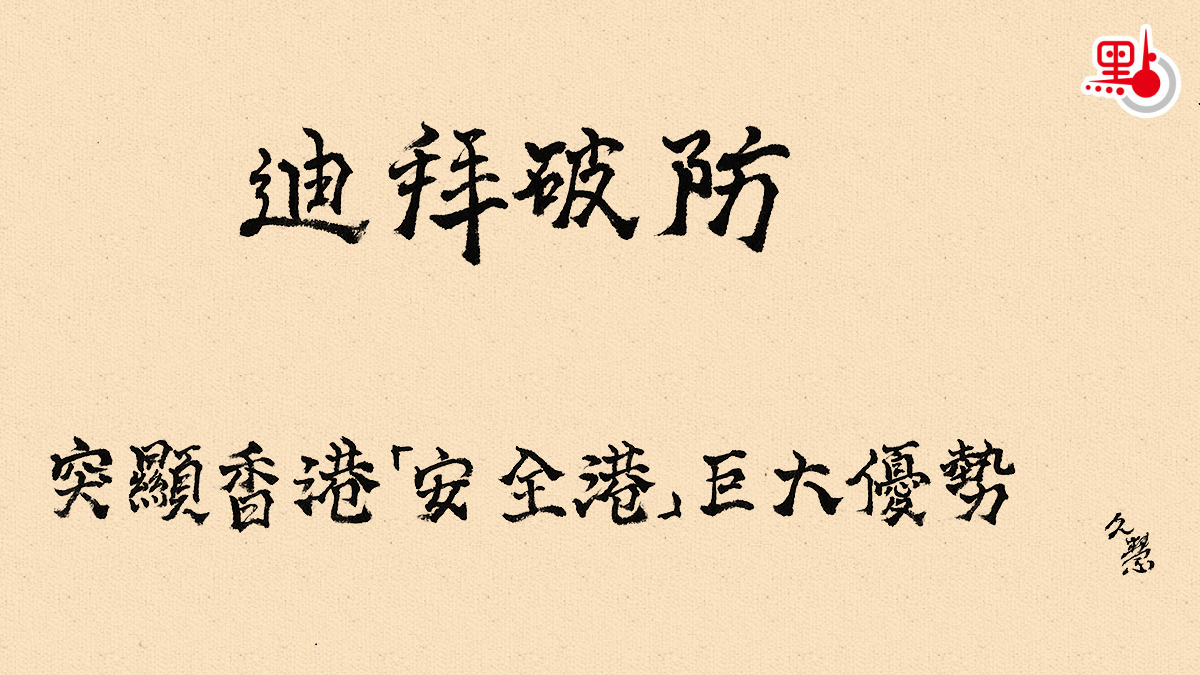 點
迪拜破防
突顯香港「安全港」巨大優勢
久慧